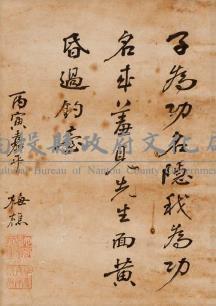 子為功名隱我為功
名來羞見先生面黃
昏過釣臺
丙寅嘉平 梅樵
南投縣政府文化局
Cultural Bureau of Nantou County Government